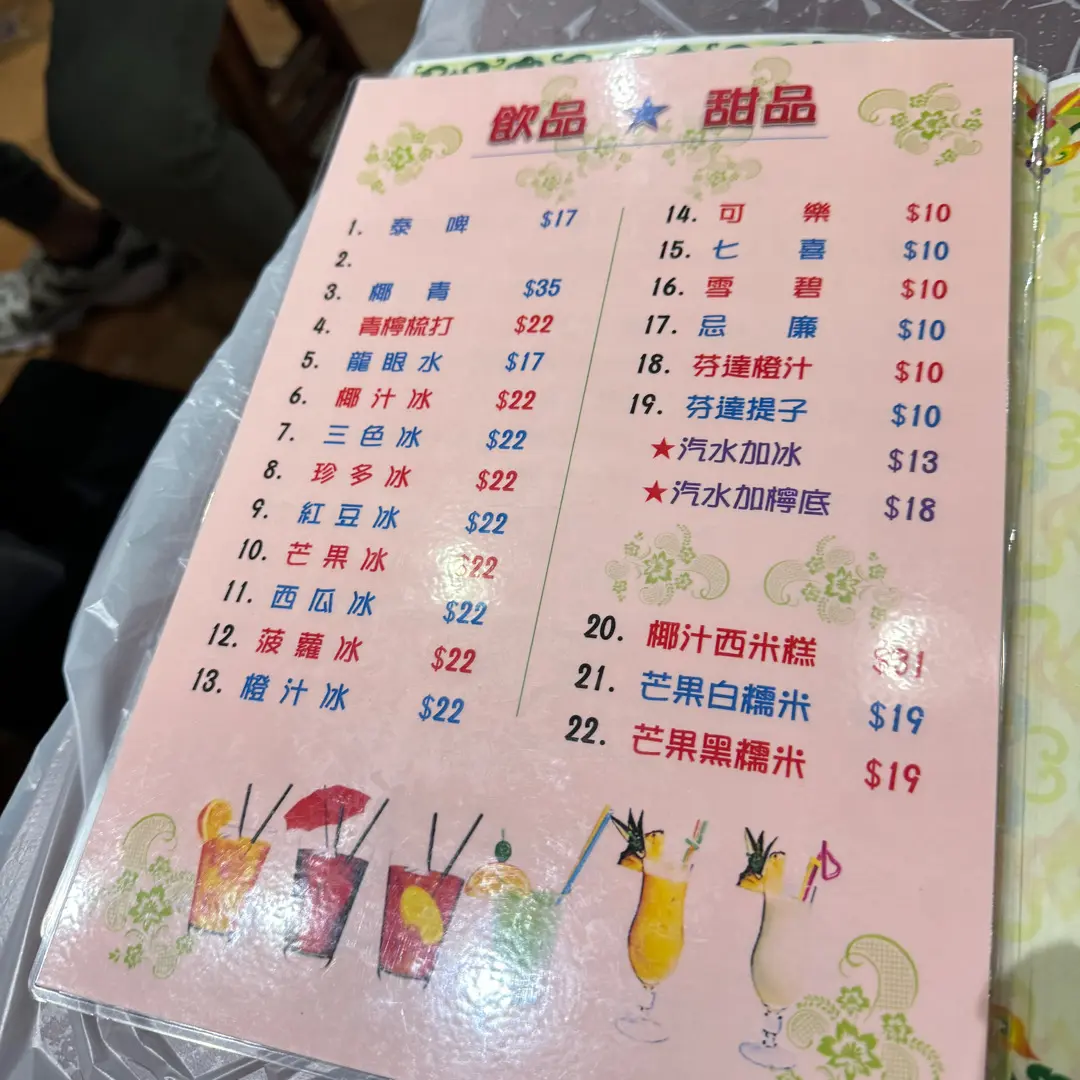 飲品 ★ 甜品
1. 泰啤 $17
2.
3. 椰青 $35
4. 青檸梳打 $22
5. 龍眼水 $17
6. 椰汁冰 $22
7. 三色冰 $22
8. 珍多冰 $22
9. 紅豆冰 $22
10. 芒果冰 $22
11. 西瓜冰 $22
12. 菠蘿冰 $22
13. 橙汁冰 $22
14. 可樂 $10
15. 七喜 $10
16. 雪碧 $10
17. 忌廉 $10
18. 芬達橙汁 $10
19. 芬達提子 $10
★汽水加冰 $13
★汽水加檸底 $18
20. 椰汁西米糕 $31
21. 芒果白糯米 $19
22. 芒果黑糯米 $19